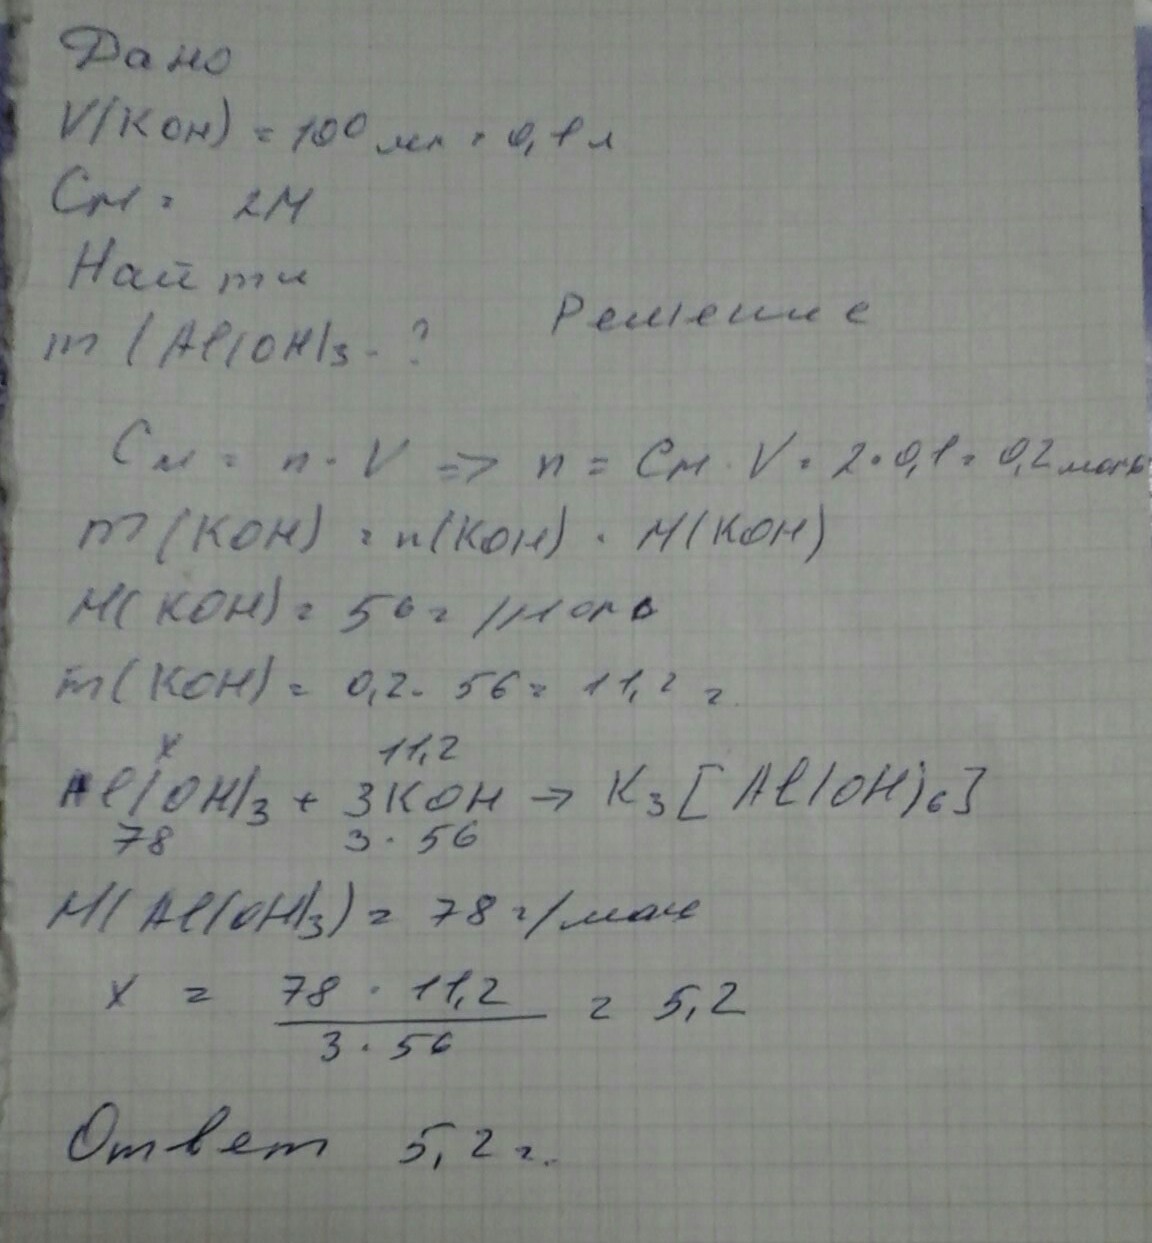 Дано
V(KOH) = 100 мл = 0,1 л
Cм = 2М
Найти
m (Al(OH)3 - ?
Решение
Cм = n · V => n = Cм · V = 2 · 0,1 = 0,2 моль
m (KOH) = n(KOH) · M(KOH)
M(KOH) = 56 г/моль
m(KOH) = 0,2 · 56 = 11,2 г.
x 11,2
Al(OH)3 + 3KOH → K3[Al(OH)6]
78 3 · 56
M(Al(OH)3) = 78 г/моль
x = 78 · 11,2 / 3 · 56 = 5,2
Ответ 5,2 г.